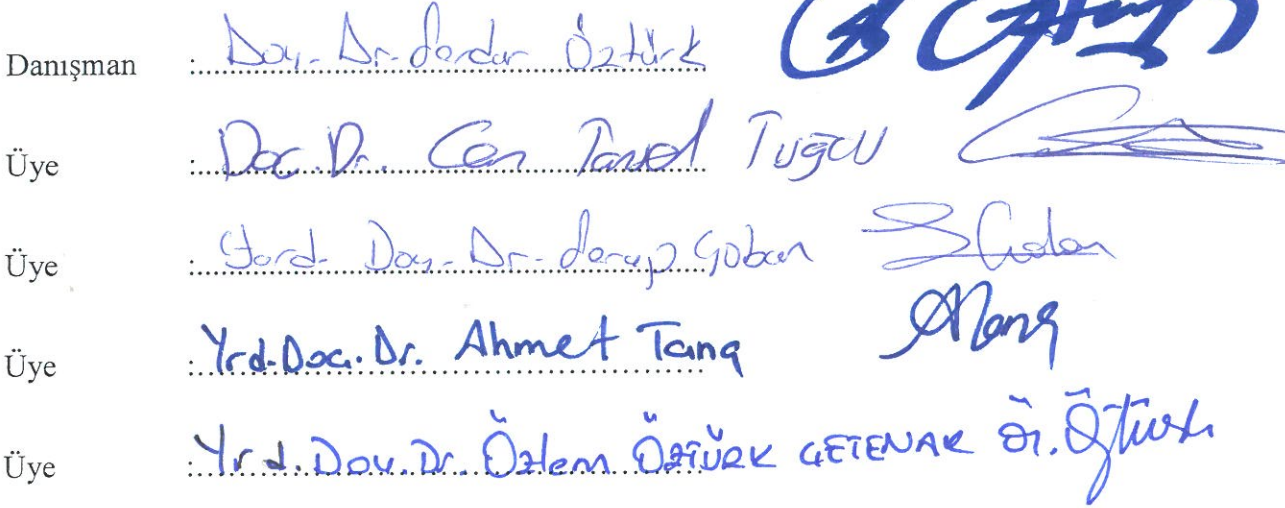 Danışman : Doç. Dr. Serdar Öztürk
Üye : Doç. Dr. Can Tansel Tuğcu
Üye : Yard. Doç. Dr. Serap Çoban
Üye : Yrd. Doç. Dr. Ahmet Tanç
Üye : Yrd. Doç. Dr. Özlem ÖZTÜRK ÇETENAK Ö. Öztürk